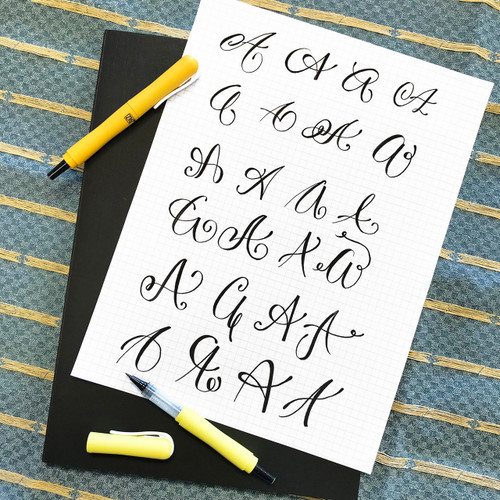 A A A A
A A A A
A A A A
A A A A
A A A A
A A A A